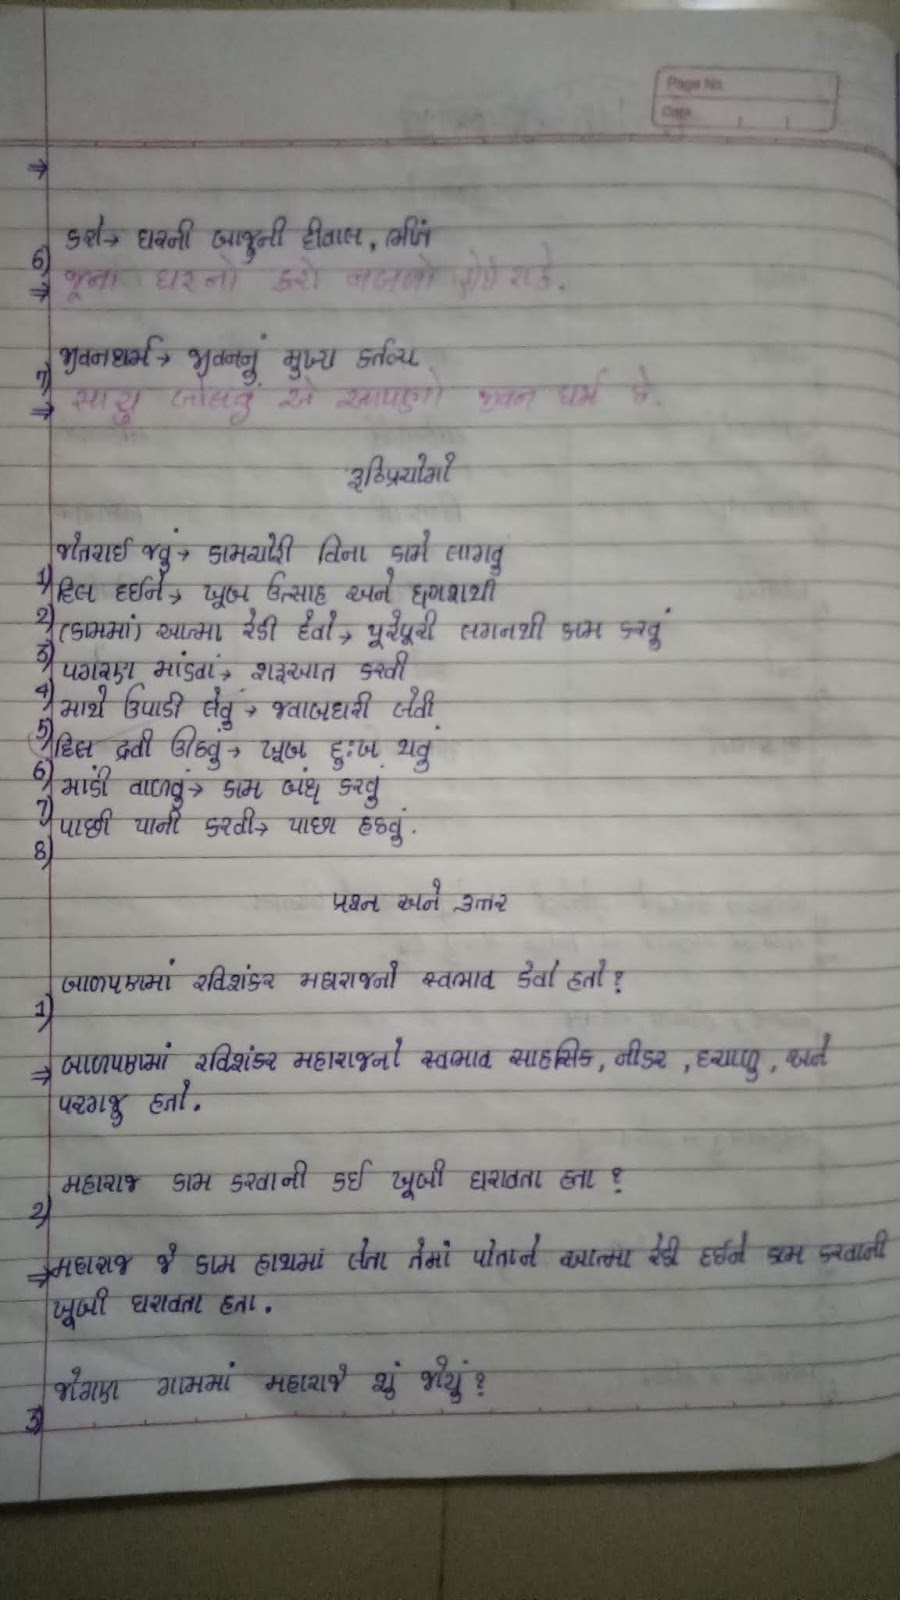 Page No.
Date
⇒
6) કરો → ઘરની બાજુની દીવાલ, ભીંત
⇒ જૂના ઘરનો કરો નબળો હોઈ શકે.
7) જીવનધર્મ → જીવનનું મુખ્ય કર્તવ્ય
⇒ સાચુ બોલવું એ આપણો જીવન ધર્મ છે.
રૂઢિપ્રયોગો
1) જોતરાઈ જવું → કામચોરી વિના કામે લાગવું
2) દિલ દઈને → ખૂબ ઉત્સાહ અને ધગશથી
3) (કામમાં) આત્મા રેડી દેવો → પૂરેપૂરી લગનથી કામ કરવું
4) પગરણ માંડવાં → શરૂઆત કરવી
5) માથે ઉપાડી લેવું → જવાબદારી લેવી
6) દિલ દ્રવી ઊઠવું → ખૂબ દુઃખ થવું
7) માંડી વાળવું → કામ બંધ કરવું
8) પાછી પાની કરવી → પાછા હઠવું.
પ્રશ્ન અને ઉત્તર
1) બાળપણમાં રવિશંકર મહારાજનો સ્વભાવ કેવો હતો?
⇒ બાળપણમાં રવિશંકર મહારાજનો સ્વભાવ સાહસિક, નીડર, દયાળુ, અને
પરગજુ હતો.
2) મહારાજ કામ કરવાની કઈ ખૂબી ધરાવતા હતા?
⇒ મહારાજ જે કામ હાથમાં લેતા તેમાં પોતાને આત્મા રેડી દઈને કામ કરવાની
ખૂબી ધરાવતા હતા.
3) જોગણ ગામમાં મહારાજે શું જોયું?